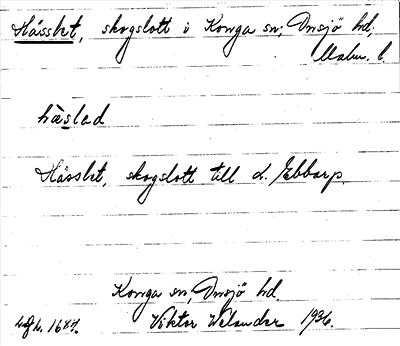 Hässlet, skogslott i Konga sn, Onsjö hd.
Malm. l.
hässlad
Hässlet, skogslott till L. Ebbarp.
Konga sn, Onsjö hd.
Viktor Welander 1936.